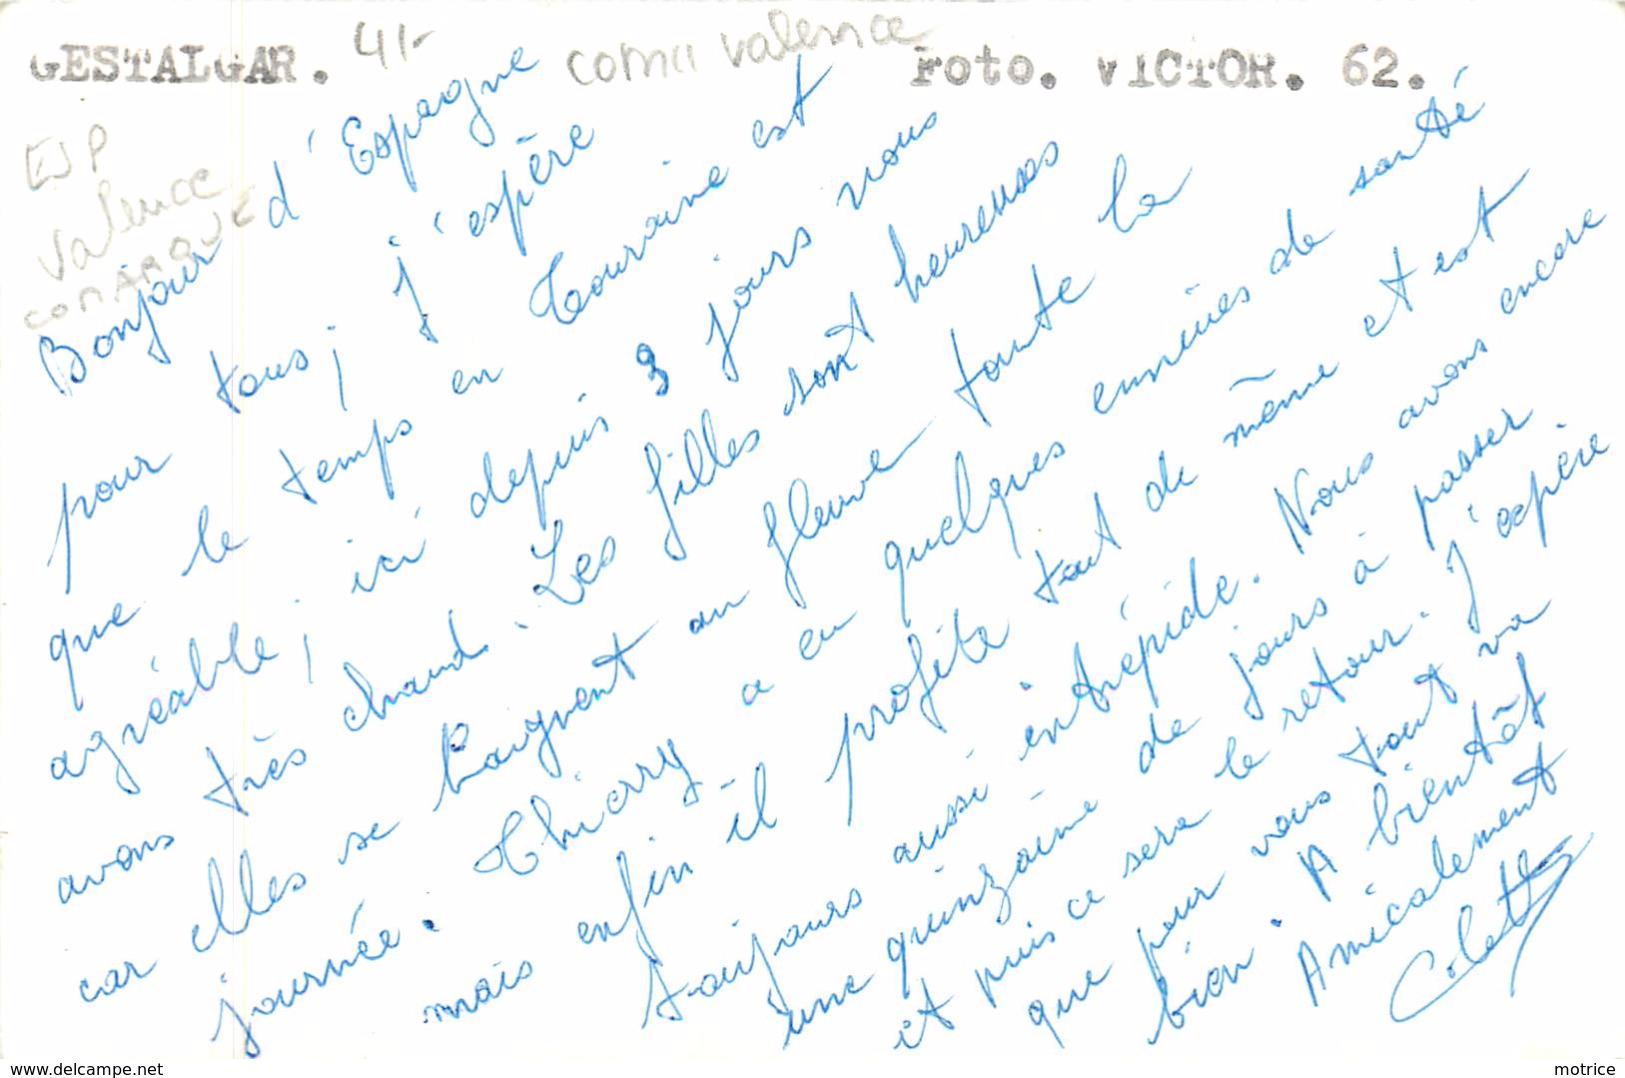 GESTALGAR. 41- comu valence Foto. VICTOR. 62.
ESP
valence
COMARQUE
Bonjour d'Espagne
pour tous ; j'espère
que le temps en Touraine est
agréable ; ici depuis 3 jours nous
avons très chaud. Les filles sont heureuses
car elles se baignent au fleuve toute la
journée. Thierry a eu quelques ennuies de santé
mais enfin il profite tout de même et est
toujours aussi intrépide. Nous avons encore
une quinzaine de jours à passer
et puis ce sera le retour. J'espère
que pour vous tout va
bien. A bientôt
Amicalement
Colette
motrice